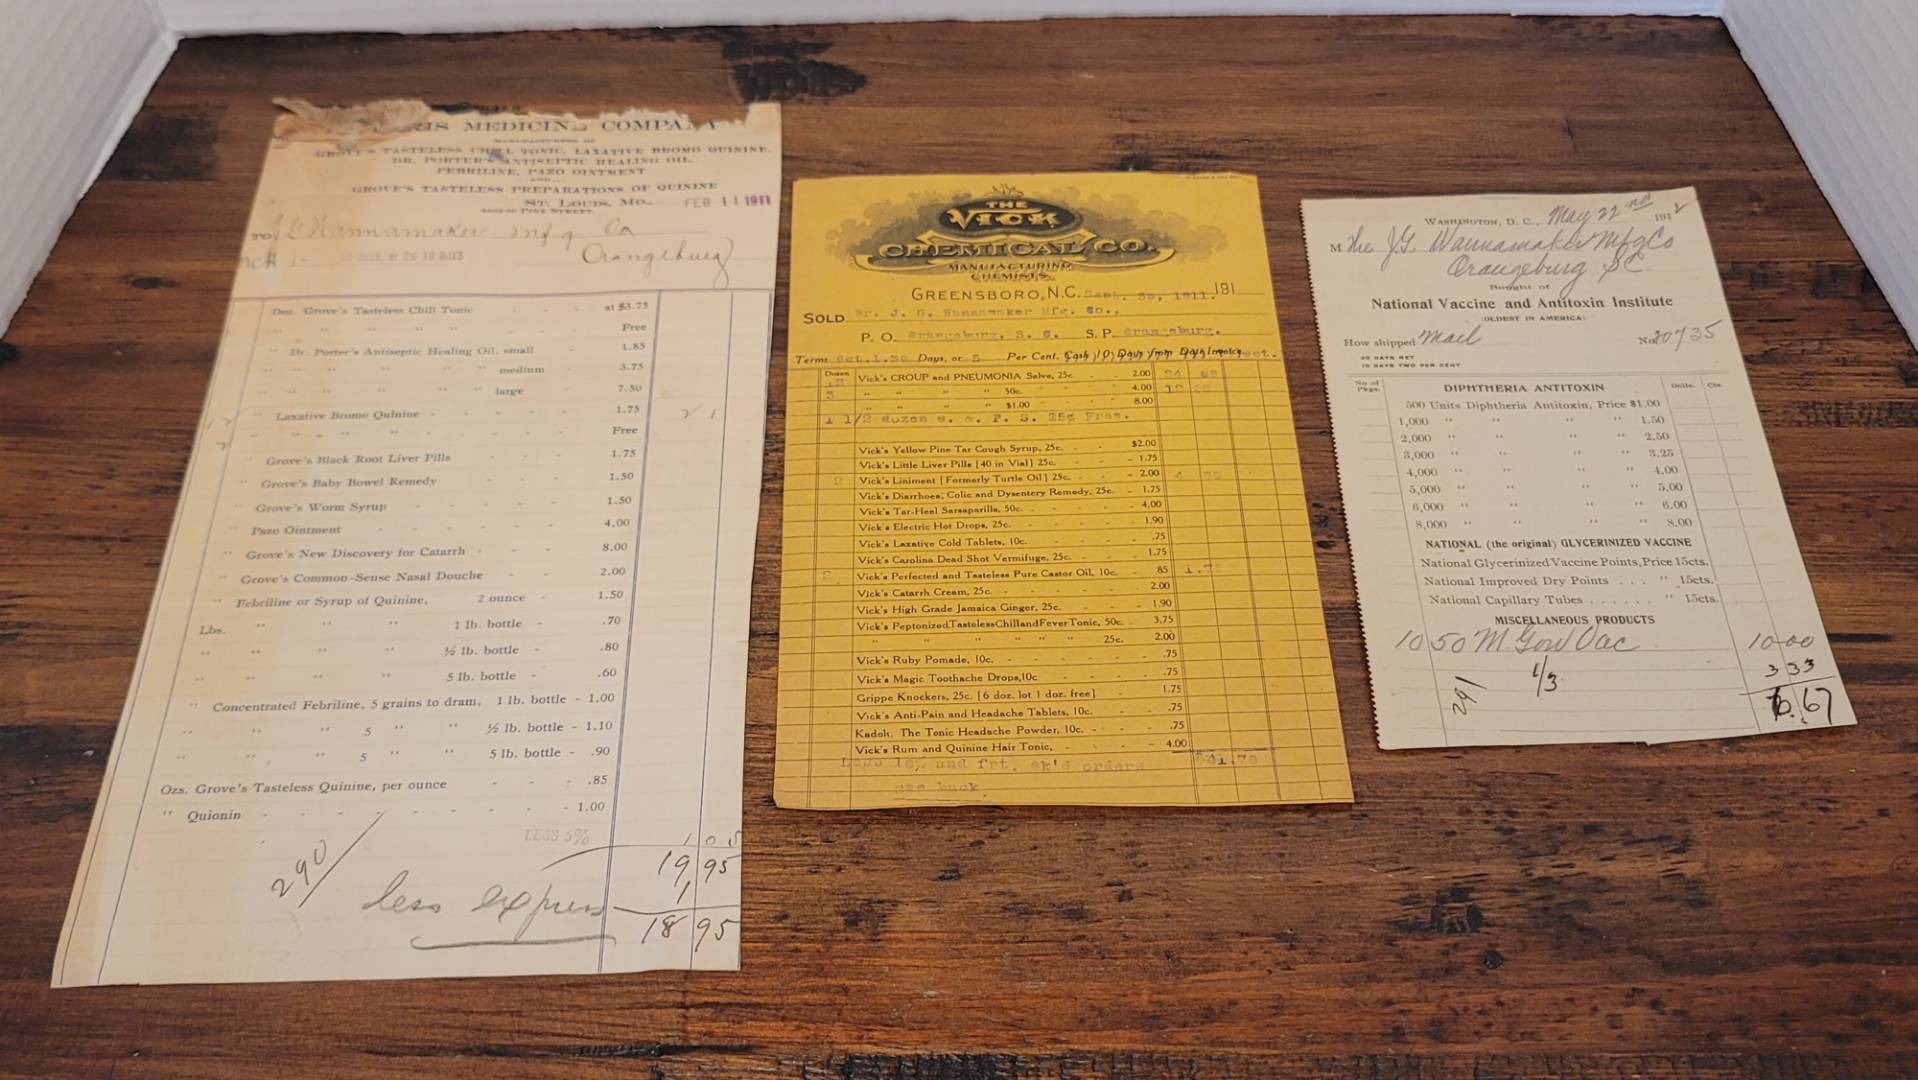 MEDICINE COMPANY
MANUFACTURERS OF
GROVE'S TASTELESS CHILL TONIC, LAXATIVE BROMO QUININE,
DR. PORTER'S ANTISEPTIC HEALING OIL,
FEBRILINE, PAZO OINTMENT
AND
GROVE'S TASTELESS PREPARATIONS OF QUININE
ST. LOUIS, MO., FEB 11 1911
PINE STREET.
TO Wannamaker Mfg Co
Orangeburg
DAYS, or 2% 10 DAYS
Doz. Grove's Tasteless Chill Tonic - - - at $3.75
" " " " - - - Free
" Dr. Porter's Antiseptic Healing Oil, small - 1.85
" " " " medium - 3.75
" " " " large - 7.50
12 " Laxative Bromo Quinine - - - - 1.75 21
2 " " " " - - - - Free
" Grove's Black Root Liver Pills - - - 1.75
" Grove's Baby Bowel Remedy - - - 1.50
" Grove's Worm Syrup - - - - 1.50
" Pazo Ointment - - - - - 4.00
" Grove's New Discovery for Catarrh - - - 8.00
" Grove's Common-Sense Nasal Douche - - 2.00
" Febriline or Syrup of Quinine, 2 ounce - 1.50
Lbs. " " " 1 lb. bottle - .70
" " " " ½ lb. bottle - .80
" " " " 5 lb. bottle - .60
" Concentrated Febriline, 5 grains to dram, 1 lb. bottle - 1.00
" " " 5 " " ½ lb. bottle - 1.10
" " " 5 " " 5 lb. bottle - .90
Ozs. Grove's Tasteless Quinine, per ounce - - - .85
" Quionin - - - - - - - 1.00
LESS 5% 1 05
290/ 19 95
less express 1
18 95
THE
VICK
CHEMICAL CO.
MANUFACTURING
CHEMISTS
GREENSBORO, N.C. Sept. 30, 1911. 191
SOLD Dr. J. G. Wannamaker Mfg. Co.,
P. O. Orangeburg, S. C. S. P. Orangeburg.
Terms Oct.1.30 Days, or 5 Per Cent. Cash 10 Days from Date Invoice
Dozen
12 Vick's CROUP and PNEUMONIA Salve, 25c - - 2.00 24 00
3 " " " " 50c. - - 4.00 12 00
" " " " $1.00 - - 8.00
1 1/2 dozen C. & P. S. 25¢ Free.
Vick's Yellow Pine Tar Cough Syrup, 25c. - - $2.00
Vick's Little Liver Pills [40 in Vial] 25c. - - - 1.75
2 Vick's Liniment [Formerly Turtle Oil] 25c. - - - 2.00 4 00
Vick's Diarrhoea, Colic and Dysentery Remedy, 25c. - 1.75
Vick's Tar-Heel Sarsaparilla, 50c. - - - - 4.00
Vick's Electric Hot Drops, 25c. - - - - 1.90
Vick's Laxative Cold Tablets, 10c. - - - - .75
Vick's Carolina Dead Shot Vermifuge, 25c. - - 1.75
2 Vick's Perfected and Tasteless Pure Castor Oil, 10c. - 85 1.70
Vick's Catarrh Cream, 25c. - - - - - 2.00
Vick's High Grade Jamaica Ginger, 25c. - - - 1.90
Vick's Peptonized Tasteless Chill and Fever Tonic, 50c. - 3.75
" " " " " " 25c. 2.00
Vick's Ruby Pomade, 10c. - - - - - .75
Vick's Magic Toothache Drops, 10c - - - - .75
Grippe Knockers, 25c. [6 doz. lot 1 doz. free] - 1.75
Vick's Anti-Pain and Headache Tablets, 10c. - - .75
Kadok. The Tonic Headache Powder, 10c. - - - .75
Vick's Rum and Quinine Hair Tonic, - - - - 4.00
Less 10% and frt. ek'd orders $41.70
see back.
WASHINGTON, D. C., May 22nd 1912
M The J.G. Wannamaker Mfg Co
Orangeburg S.C.
Bought of
National Vaccine and Antitoxin Institute
(OLDEST IN AMERICA)
How shipped Mail No. 20735
30 DAYS NET
10 DAYS TWO PER CENT
No of Pkgs. DIPHTHERIA ANTITOXIN Dolls. Cts.
500 Units Diphtheria Antitoxin, Price $1.00
1,000 " " " " 1.50
2,000 " " " " 2.50
3,000 " " " " 3.25
4,000 " " " " 4.00
5,000 " " " " 5.00
6,000 " " " " 6.00
8,000 " " " " 8.00
NATIONAL (the original) GLYCERINIZED VACCINE
National Glycerinized Vaccine Points, Price 15cts.
National Improved Dry Points . . . " 15cts.
National Capillary Tubes . . . . . . " 15cts.
MISCELLANEOUS PRODUCTS
10 50 M Vac 10 00
1/3 3 33
291 6.67